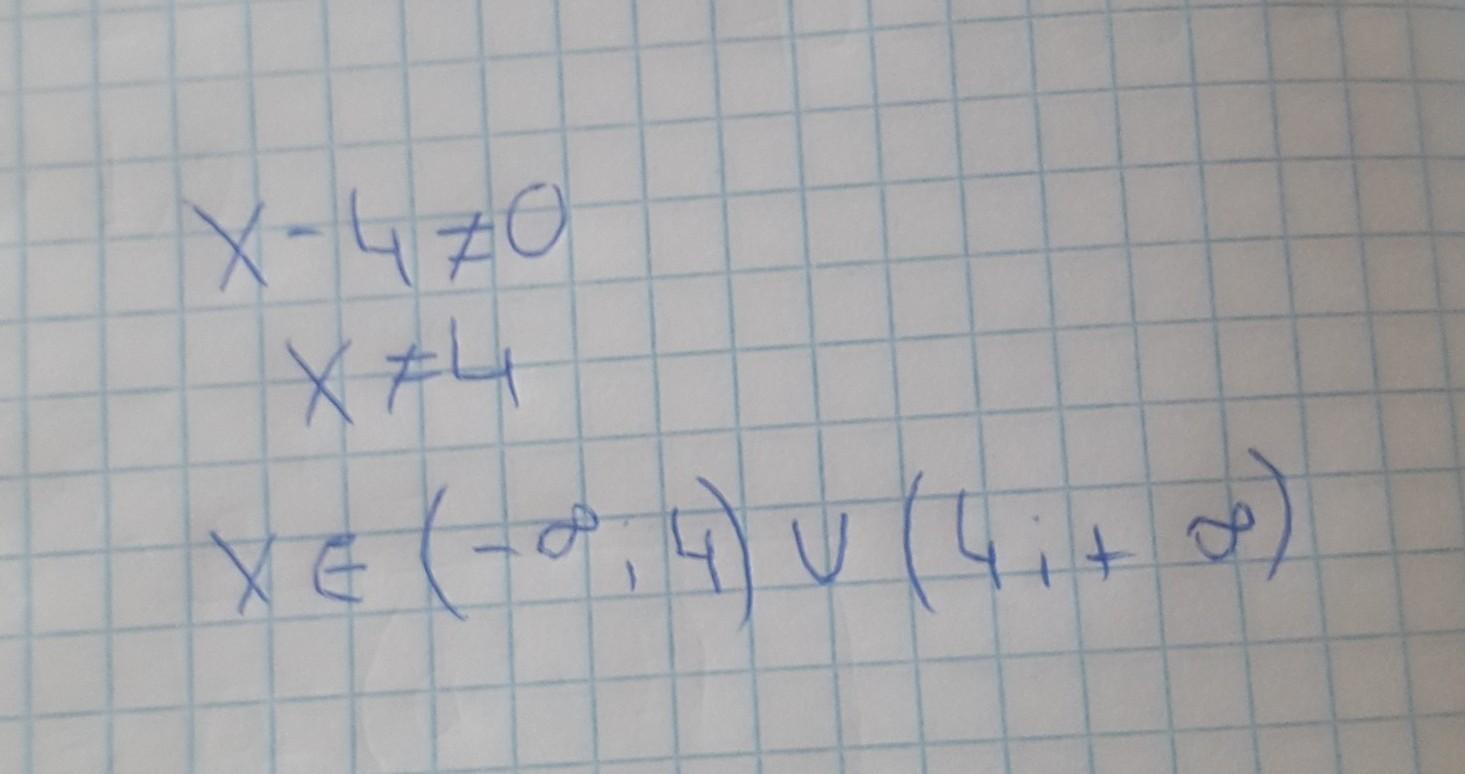 x - 4 ≠ 0
x ≠ 4
x ∈ (-∞; 4) ∪ (4; + ∞)